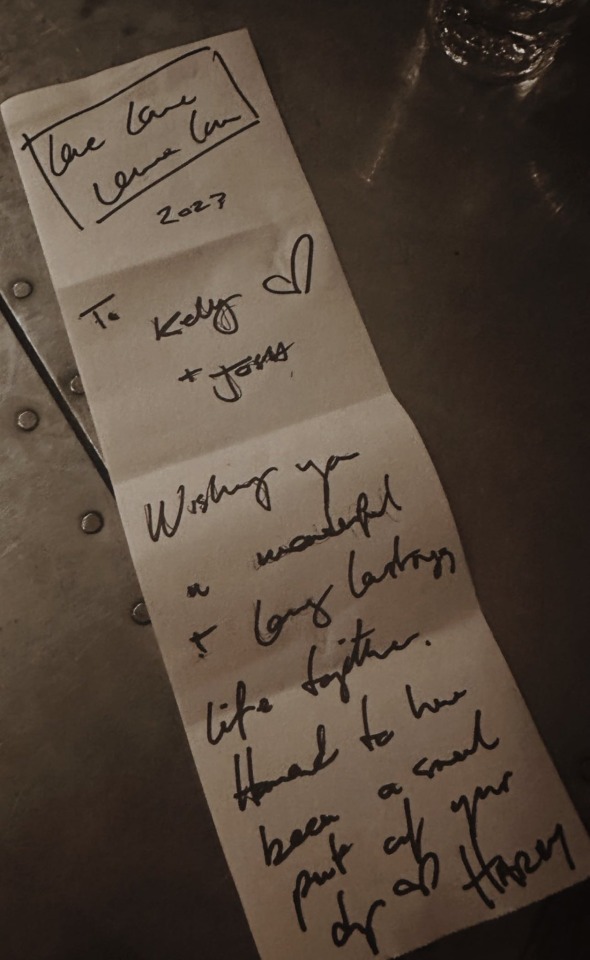 Love Love
Love
2023
To Kelly
+ Josh
Wishing you
a wonderful
+ long lasting
life together.
Honored to have
been a small
part of your
day HARRY